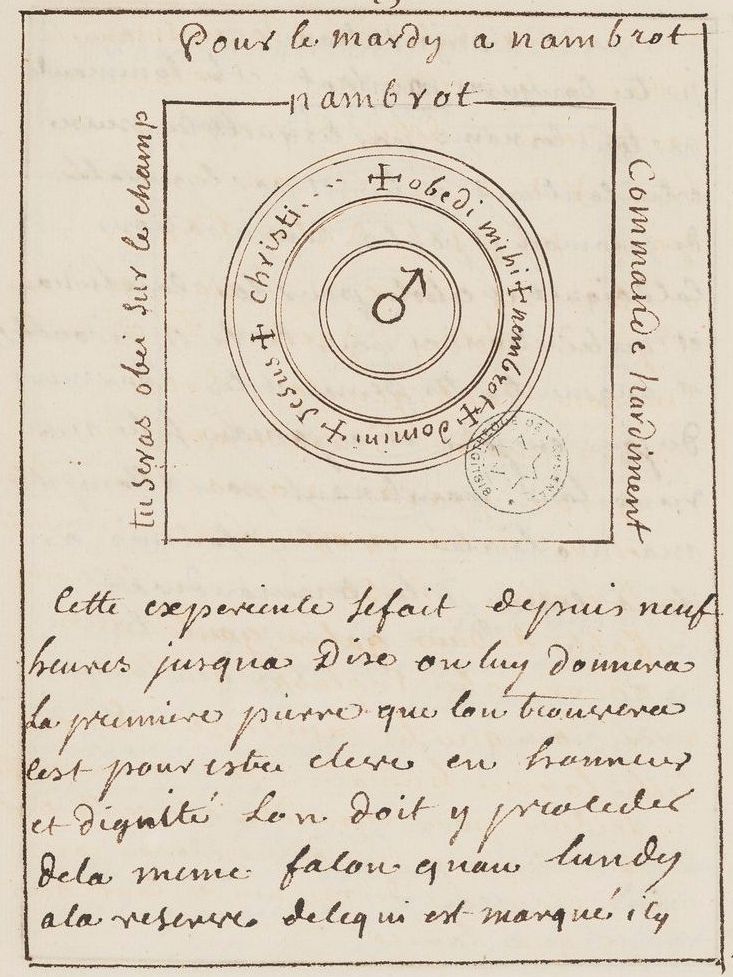 Pour le mardy a nambrot
nambrot
tu seras obei sur le champ
Commande hardiment
+ obedi mihi + nembrot + domini + Jesus + christi....
BIBLIOTHEQUE DE L'ARSENAL
Cette experience se fait depuis neuf
heures jusqua Dixe on luy donnera
La premiere pierre que lon trouvera
Cest pour estre eleve en honneur
et dignité Lon doit y proceder
de la meme facon quau lundy
a la reserve de ce qui est marqué icy